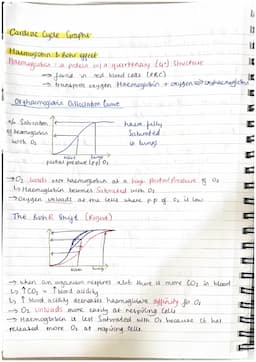 Cardiac Cycle Graphs
Haemoglobin & Bohr effect
Haemoglobin: a protein w/ a quarternary (4°) structure
→ found in red blood cells (RBC)
→ transports oxygen Haemoglobin + oxygen ⇌ oxyhaemoglobin
Oxyhaemoglobin Dissociation Curve
% Saturation
of haemoglobin
with O₂
haem fully
saturated
in lungs
lungs
partial pressure (pp) O₂
→ O₂ loads onto haemoglobin at a high partial pressure of O₂
↳ Haemoglobin becomes saturated with O₂
→ Oxygen unloads at the cells where p.p of O₂ is low
The Bohr Shift (Right)
lungs
→ when an organism respires alot there is more CO₂ in blood
↳ ↑CO₂ = ↑ blood acidity
↳ ↑ blood acidity decreases haemoglobins affinity for O₂
→ O₂ unloads more easily at respiring cells
→ Haemoglobin is less saturated with O₂ because it has
released more O₂ at respiring cells